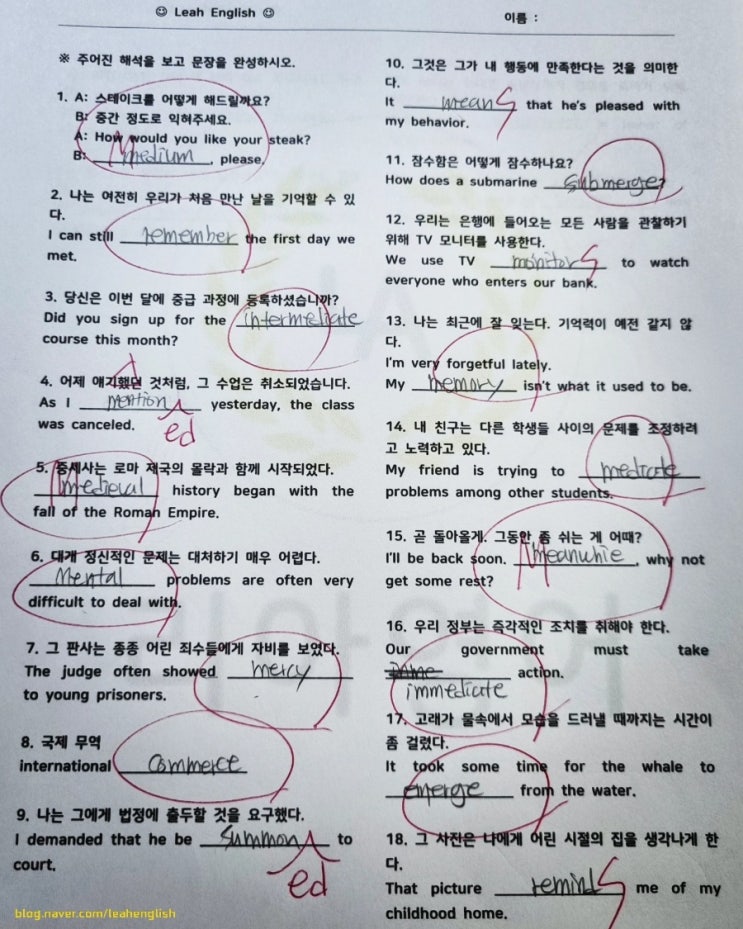 ☺ Leah English ☺
이름 :
※ 주어진 해석을 보고 문장을 완성하시오.
1. A: 스테이크를 어떻게 해드릴까요?
B: 중간 정도로 익혀주세요.
A: How would you like your steak?
B: Medium, please.
2. 나는 여전히 우리가 처음 만난 날을 기억할 수 있
다.
I can still remember the first day we
met.
3. 당신은 이번 달에 중급 과정에 등록하셨습니까?
Did you sign up for the intermediate
course this month?
4. 어제 얘기했던 것처럼, 그 수업은 취소되었습니다.
As I mention yesterday, the class
ed
was canceled.
5. 중세사는 로마 제국의 몰락과 함께 시작되었다.
medieval history began with the
fall of the Roman Empire.
6. 대개 정신적인 문제는 대처하기 매우 어렵다.
Mental problems are often very
difficult to deal with.
7. 그 판사는 종종 어린 죄수들에게 자비를 보였다.
The judge often showed mercy
to young prisoners.
8. 국제 무역
international commerce
9. 나는 그에게 법정에 출두할 것을 요구했다.
I demanded that he be summon to
ed
court.
10. 그것은 그가 내 행동에 만족한다는 것을 의미한
다.
It means that he's pleased with
my behavior.
11. 잠수함은 어떻게 잠수하나요?
How does a submarine submerge?
12. 우리는 은행에 들어오는 모든 사람을 관찰하기
위해 TV 모니터를 사용한다.
We use TV monitors to watch
everyone who enters our bank.
13. 나는 최근에 잘 잊는다. 기억력이 예전 같지 않
다.
I'm very forgetful lately.
My memory isn't what it used to be.
14. 내 친구는 다른 학생들 사이의 문제를 조정하려
고 노력하고 있다.
My friend is trying to mediate
problems among other students.
15. 곧 돌아올게. 그동안 좀 쉬는 게 어때?
I'll be back soon. Meanwhie, why not
get some rest?
16. 우리 정부는 즉각적인 조치를 취해야 한다.
Our government must take
action.
immediate
17. 고래가 물속에서 모습을 드러낼 때까지는 시간이
좀 걸렸다.
It took some time for the whale to
emerge from the water.
18. 그 사진은 나에게 어린 시절의 집을 생각나게 한
다.
That picture reminds me of my
childhood home.
blog.naver.com/leahenglish